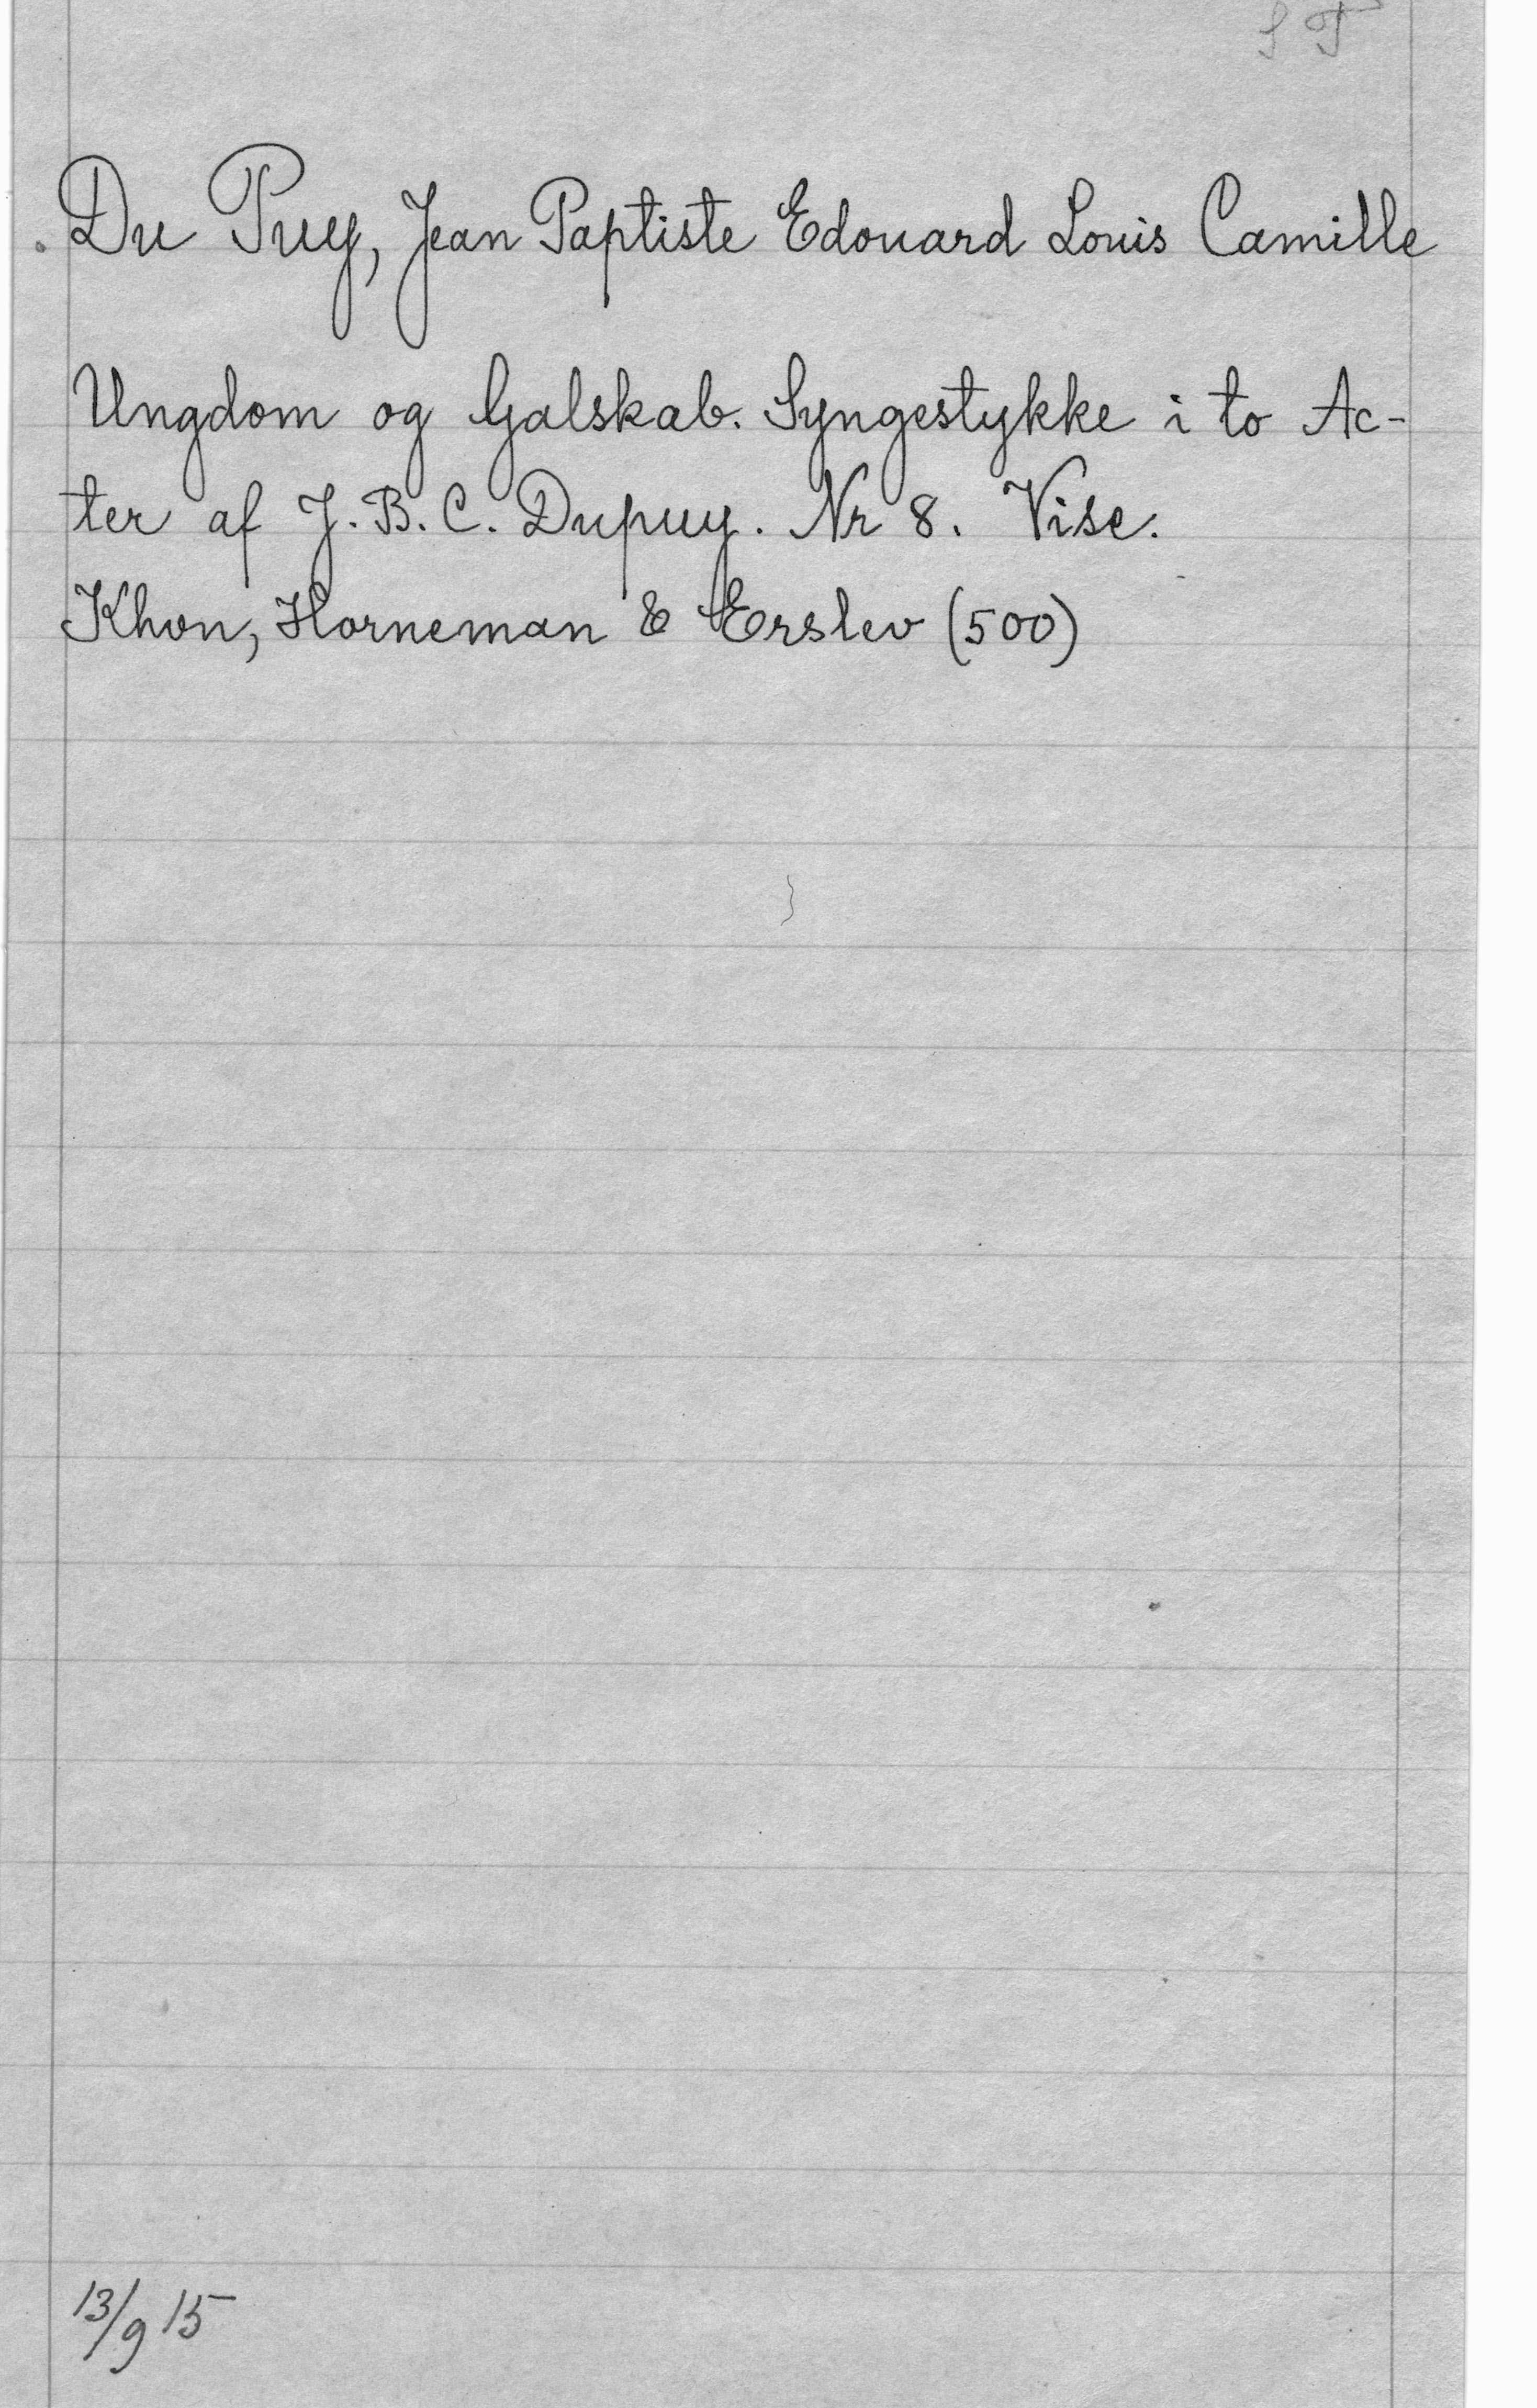 S T
Du Puy, Jean Paptiste Edouard Louis Camille
Ungdom og Galskab. Syngestykke i to Ac-
ter af J. B. C. Dupuy. Nr 8. Vise.
Khvn, Horneman & Erslev (500)
13/9 15